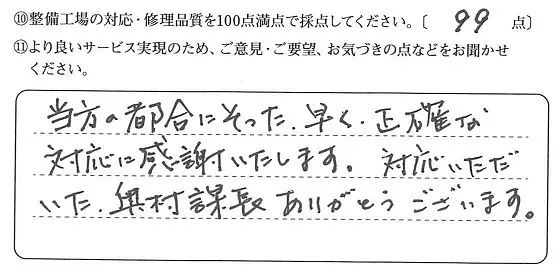 ⑩整備工場の対応・修理品質を100点満点で採点してください。〔 99 点〕
⑪より良いサービス実現のため、ご意見・ご要望、お気づきの点などをお聞かせ
ください。
当方の都合にそった、早く・正確な
対応に感謝いたします。対応いただ
いた、奥村課長ありがとうございます。